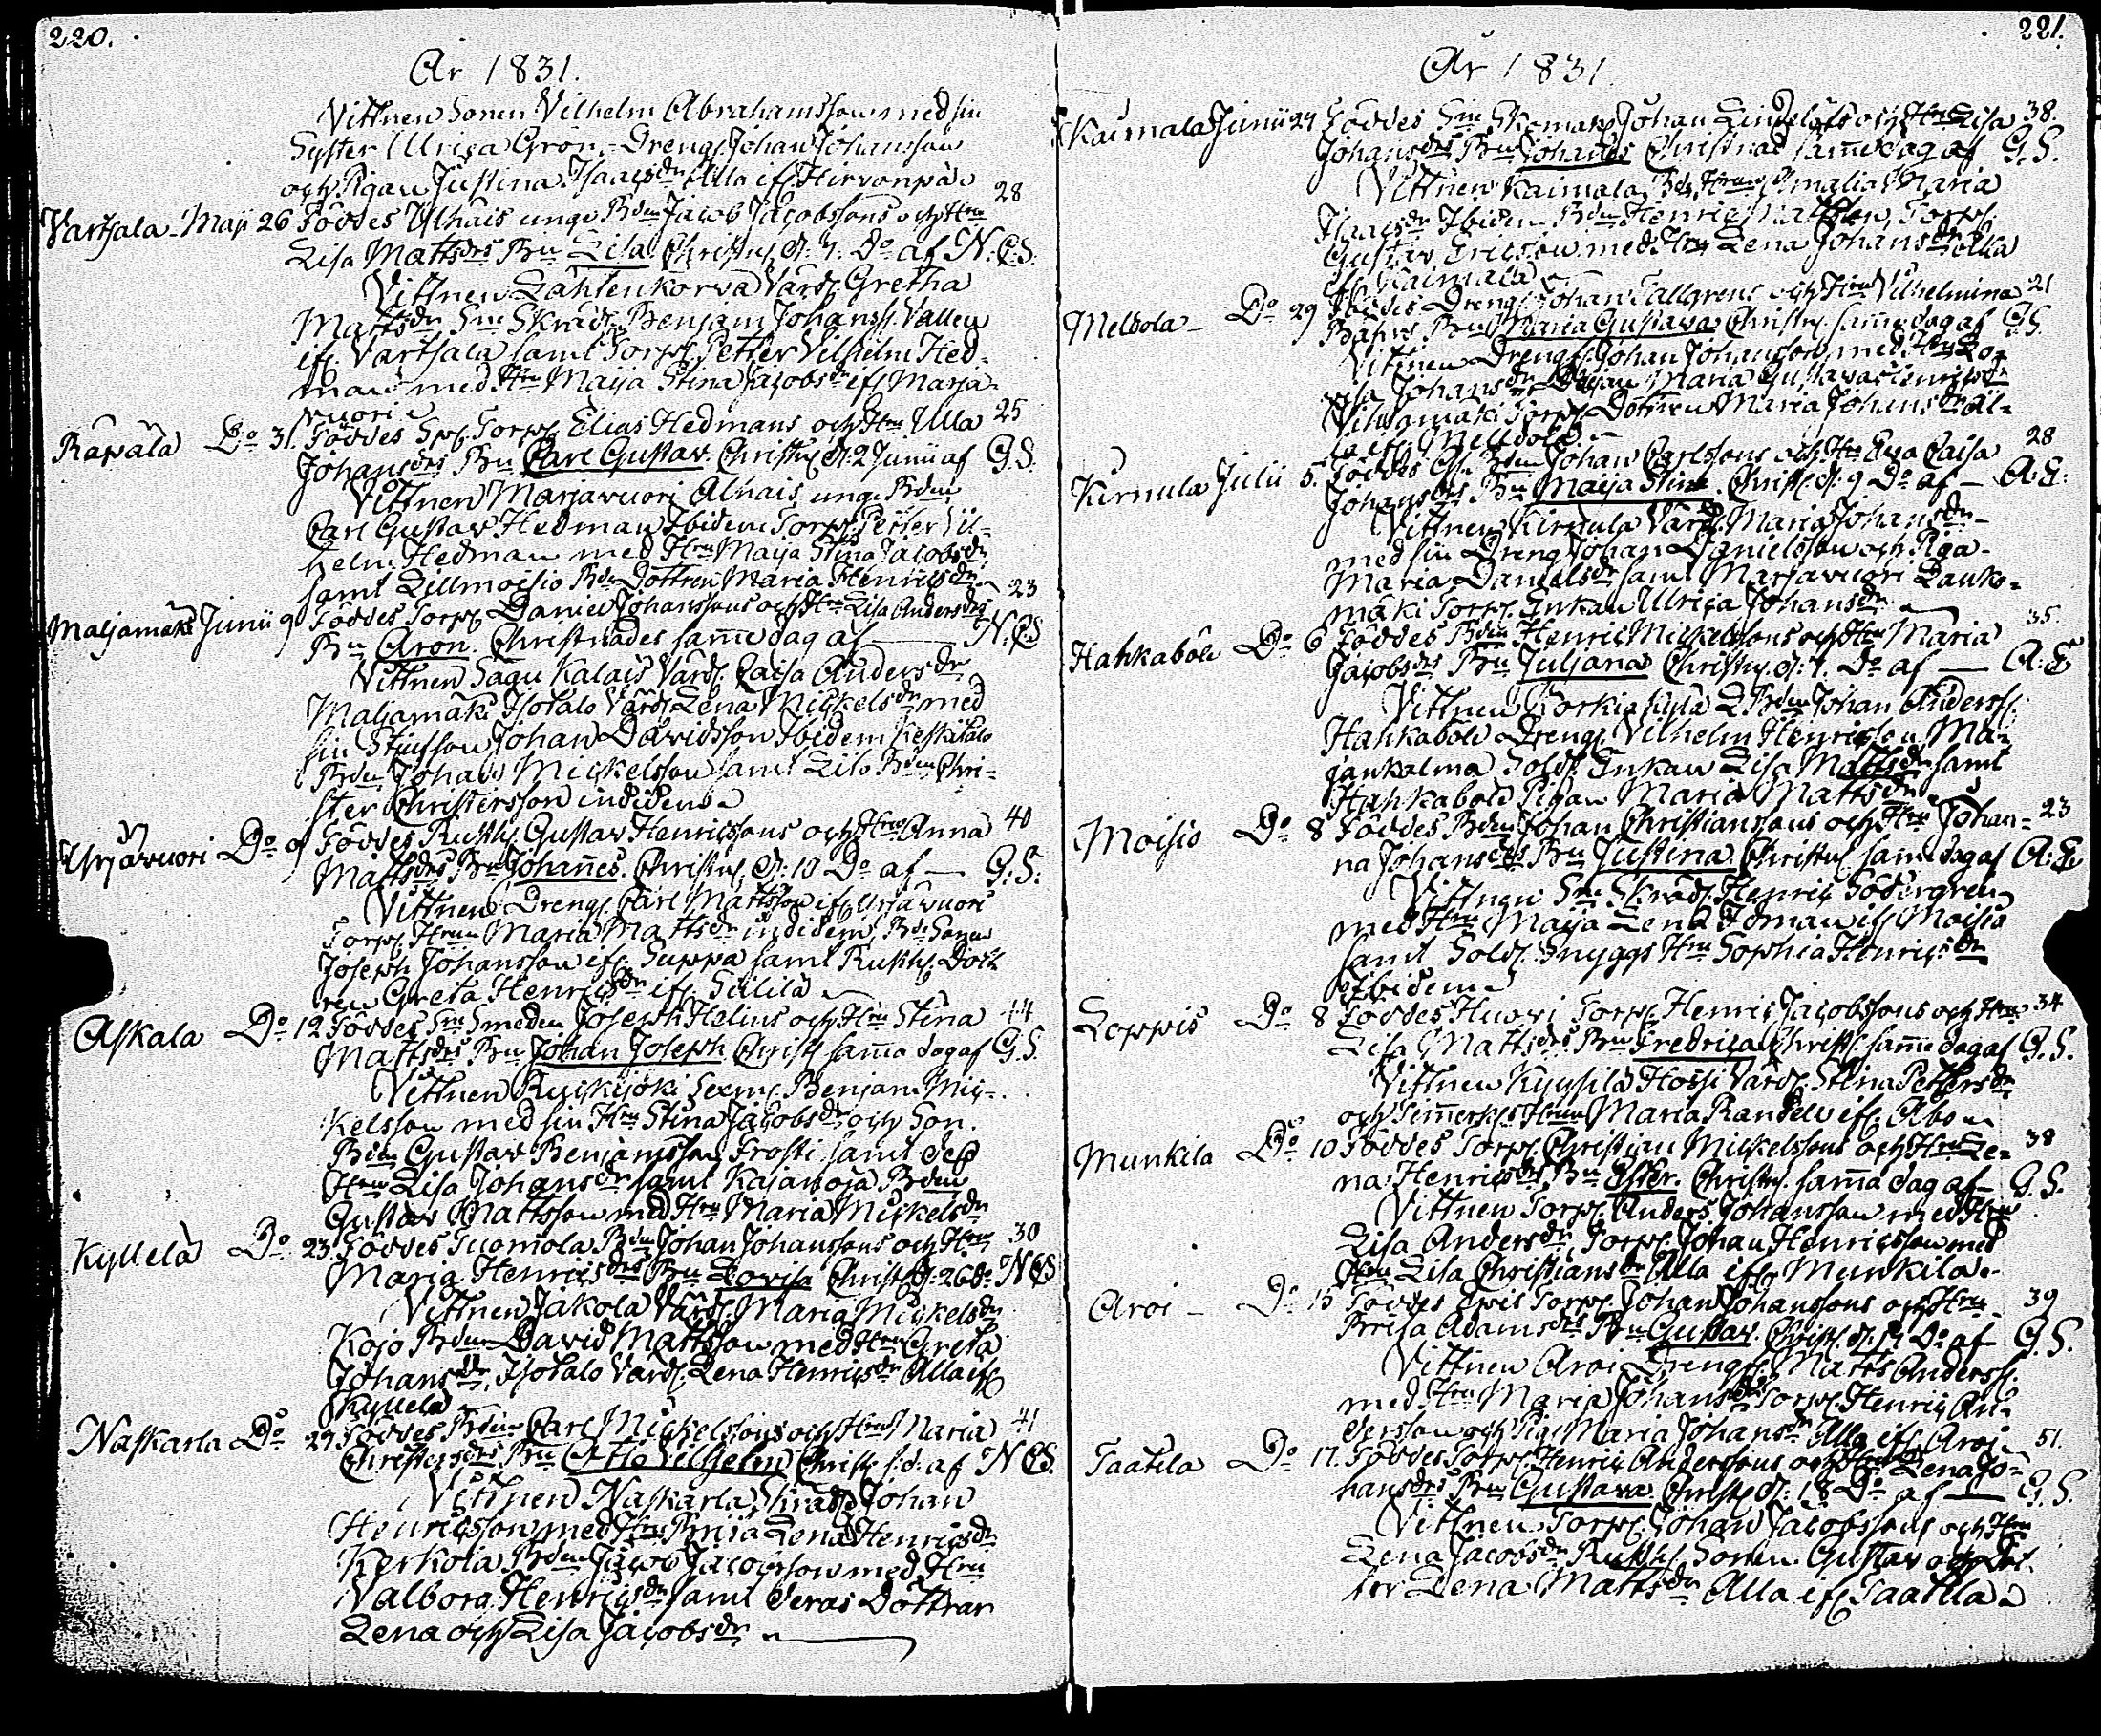 220.
År 1831.
Vittnen Sonen Vilhelm Abrahamsson med sin
Syster Ulrica Grön, Dreng. Johan Johansson
och Pigan Justina Isaacsdr Alla if. Hirvonpää
Vartsala - Maji 26 Föddes Ylhäis unge Bdn Jacob Jacobssons och Hru 28
Lisa Mattsdrs Bn Lisa. Christn. d. 7. Do af N.C.S.
Vittnen Lähtenkorva Värd. Gretha
Mattsdr Sn Skräd. Benjam Johanss. Vallen
if. Vartsala samt Torp. Petter Vilhelm Hed-
man med Hru Maija Stina Jacobsdr if Marja-
vuori
Rapala Do 31. Föddes Torp. Elias Hedmans och Hru Ulla 25
Johansdrs Bn Carl Gustav. Christn. d. 2 Junii af G.S.
Vittnen Marjavuori Alhais unge Bdn
Carl Gustav Hedman Ibidem Torp. Petter Vil-
helm Hedman med Hru Maija Stina Jacobsdr
samt Lillmoisio Bdn Dottren Maria Henricsdr
Maljamäki Junii 9 Föddes Torp. Daniel Johanssons och Hru Lisa Andersdrs 23
Bn Aron. Christnades samma dag af — N.C.S
Vittnen Sagu Kalais Värd. Caisa Andersdr
Maljamäki Isotalo Värd. Lena Mickelsdr med
sin Stiufson Johan Davidsson Ibidem Keskitalo
Bdn Johan Mickelsson samt Lilo Bdn Chri-
ster Christersson indidem
Yrjävuori Do 9 Föddes Rusth. Gustav Henricssons och Hru Anna 40
Mattsdrs Bn Johannes. Christn. d. 10 Do af — G.S.
Vittnen Dreng. Carl Mattsson if. Yrjävuori
Torp. Hrun Maria Mattsdr indidem, Bde Sonen
Joseph Johansson if. Suppa samt Rusth. Dott
ren Greta Henricsdr if. Sillilä
Askala Do 12 Föddes Sn Smeden Joseph Helins och Hru Stina 44
Mattsdrs Bn Johan Joseph Christ samma dag af G.S.
Vittnen Ruskijoki Sexm. Benjam Mic-
kelsson med sin Hru Stina Jacobsdr och Son.
Bdn Gustav Benjamsson Frosti samt dess
Hru Lisa Johansdr samt Kajanoja Bdn
Gustav Mattsson med Hru Maria Mickelsdr
Kyllelä Do 23. Föddes Tuomola Bdn Johan Johanssons och Hru 30
Maria Henricsdrs Bn Lovisa Christ d. 26 Do N.C.S
Vittnen Jakola Värd. Maria Mickelsdr
Kojo Bdn David Mattsson med Hru Greta
Johansdr, Isotalo Värd. Lena Henricsdr Alla if
Kyllelä
Naskarla Do 29 Föddes Bdn Carl Mickelssons och Hru Maria 41
Christersdrs Bn Otto Vilhelm Christn s.d. af N.C.S.
Vittnen Naskarla Skräd. Johan
Henricsson med Hru Brita Lena Henricsdr
Kerkola Bdn Jacob Jacobsson med Hru
Valborg Henricsdr samt deras Döttrar
Lena och Lisa Jacobsdr
221.
År 1831
Kaimala Junii 24 Föddes Sn Skomak. Johan Lindelöfs och Hru Lisa 38.
Johansdrs Bn Johannes Christnad samma dag af G.S.
Vittnen Kaimala Bde Hrun Amalia Maria
Isaacsdr Ibidem Bdn Henric Mattsson, Torp.
Gustav Ericsson med Hru Lena Johansdr Alla
if. Kaimala
Meldola - Do 29 Föddes Dreng. Johan Tallgrens och Hru Vilhelmina 21
Bn Maria Gustava Christn. samma dag af G.S.
Vittnen Dreng. Johan Johansson med Hru Lo-
visa Johansdr Pigan Maria Gustava Henricsdr
Torp. Dottren Maria Johansdr Al-
la if. Melldola.
Kirnula Julii 5. Föddes Bdn Johan Carlssons och Hru Eva Caisa 28
Johansdrs Bn Maija Stina. Christ. d. 9 Do af — A.E.
Vittnen Kirnula Värd. Maria Johansdr
med sin Dreng Johan Danielsson och Piga
Maria Danielsdr samt Marjavuori Lauko-
mäki Torp. Enkan Ulrica Johansdr
Hahkabole Do 6 Föddes Bdn Henric Mickelssons och Hru Maria 35.
Jacobsdrs Bn Juljana Christn. d. 7. Do af — A.E
Vittnen Korkiakylä Bdn Johan Anderss.
Hahkabole Dreng. Vilhelm Henricsson, Ma-
jankalma Sold. Enkan Lisa Mattsdr samt
Hahkabole Pigan Maria Mattsdr
Moisio Do 8 Föddes Bdn Johan Christianssons och Hru Johan- 23
na Johansdrs Bn Justina. Christn. samma dag af A.E.
Vittnen Sn Skräd. Henric Södergren
med Hru Maija Lena Idman if. Moisio
samt Sold. Snyggs Hru Sophia Henricsdr
Ibidem
Loppis Do 8 Föddes Huovi Torp. Henric Jacobssons och Hru 34
Lisa Mattsdrs Bn Fredrica Christ. samma dag af G.S.
Vittnen Kyynsilä Hossi Värd. Stina Pettersdr
och Timmerk. Hrun Maria Randell if. Åbo
Munkila Do 10 Föddes Torp. Christian Mickelssons och Hru Le- 38
na Henricsdrs Bn Ester. Christn. samma dag af G.S.
Vittnen Torp. Anders Johansson med Hru
Lisa Andersdr Torp. Johan Henricsson med
Hru Lisa Christiansdr Alla if. Munkila.
Aroi - Do 15 Föddes Torp. Johan Johanssons och Hru 39
Brita Adamsdrs Bn Gustav. Christ. d. 17 Do af G.S.
Vittnen Aroi Dreng. Matts Anderss.
med Hru Maria Johansdr Torp. Henric An-
dersson och Pig. Maria Johansdr Alla if. Aroi
Taatila Do 17. Föddes Torp. Henric Anderssons och Hru Lena Jo- 51.
hansdrs Bn Gustava. Christ. d. 18 Do af — G.S.
Vittnen Torp. Johan Jacobssons och Hru
Lena Jacobsdr Rusth. Sonen Gustav och Dot
ter Lena Mattsdr Alla if. Taatila